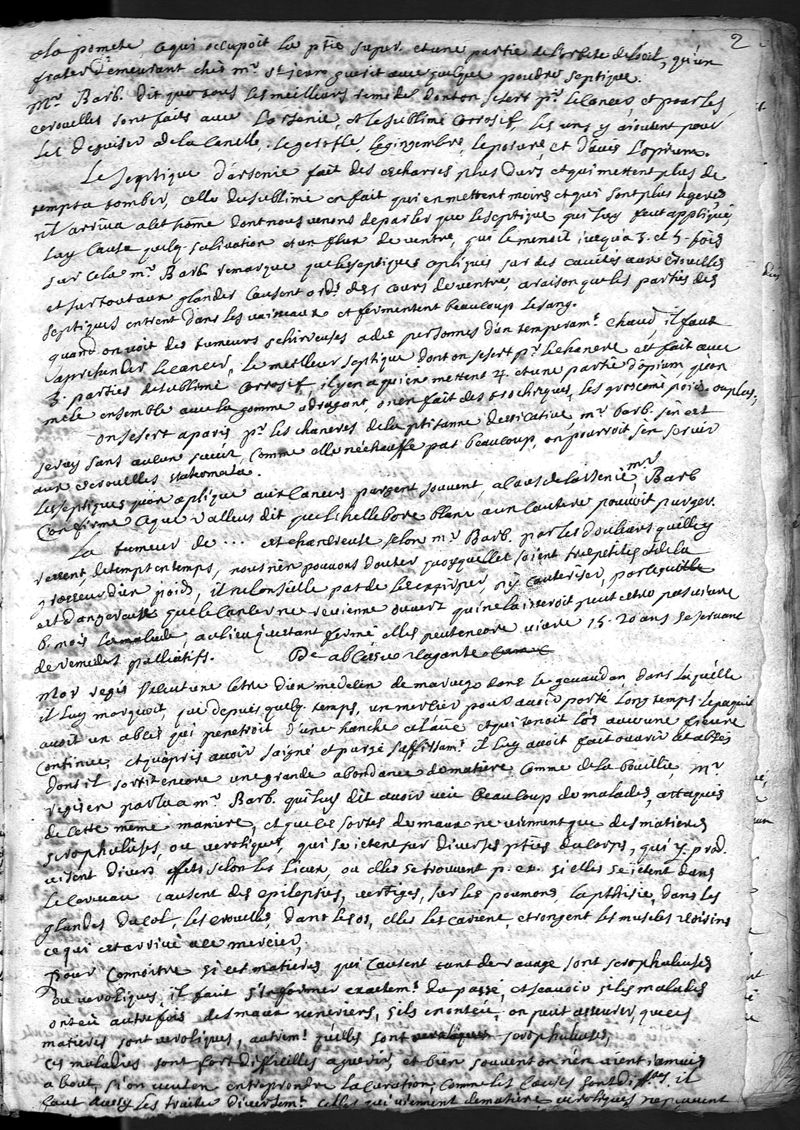 2
a la pomete a qui occupoit la ptie super. et une partie de l'orbite de l'oeil, qu'un
frater demeurant chés mr. st jean guerit avec quelque poudre septique.
Mr. Barb. dit que tous les meilliurs remedes dont on se sert pr. le cancer, et pour les
ecrouelles sont faits avec l'arsenic, et le sublimé corrosif, les uns y aioutent pour
les deguiser de la canelle, le gerofle, le gingembre, le poivre, et d'autres l'opium.
Le septique d'arsenic fait des escharres plus durs et qui mettent plus de
temps a tomber, celluy de sublimé en fait qui en mettent moins et qui sont plus legeres
il arriva a cet home dont nous venons de parler que le septique qui luy feut appliqué,
luy causa quelq. salivation et un flux de ventre, qui le menoit iusqu'a 3. et 4. fois
sur cela mr. Barb. remarque que les septiques apliqués sur des cauites aux ecrouelles
et surtout aux glandes causent ord. des cours de ventre, a raison que les parties des
septiques entrent dans les vaisseaux et fermentent beaucoup le sang.
quand on voit des tumeurs schirreuses a des personnes d'un temperamt. chaud, il faut
aprehender le cancer, le meilleur septique dont on se sert pr. le chancre est fait avec
3. parties de sublimé corrosif, il y en a qui en mettent 4. et une partie d'opium qu'on
mele ensemble avec la gomme adragant, on en fait des trochisques, les gros come pois ou plus,
on se sert a paris pr. les chancres de la ptisanne dessicative, mr. barb. s'en est
servy sans aucun succes, comme elle n'echauffe pas beaucoup, on pourroit s'en servir
aux ecrouelles
les septiques qu'on aplique aux cancers purgent souvent, a cause de l'arsenic, mr. Barb
confirme a que dit que l'hellebore blanc a un cautere pouvoit purger.
La tumeur de ... est chancreuse selon mr. Barb. par les douleurs qu'elle y
ressent, de temps en temps, nous n'en pouvons douter quoyqu'elles soient tres petites de la
grosseur d'un poids, il ne conseille pas de l'extirper, ny cauteriser, par ce qu'elle
est dangereuse que le cancer ne revienne ouvert qui ne laisseroit peut etre pas vivre
6. mois la malade, au lieu qu'etant fermé elles peut encore vivre 15. 20 ans se servant
de remedes palliatifs. De
Mor regis receut une letre d'un medecin de maruege dans le gevaudan dans laquelle
il luy marquoit, que depuis quelq. temps, un mercier pour avoir porté long temps le paquet
avoit un abces qui penetroit d'une hanche a l'autre et qui tenoit l'os avec une fievre
continue, et qu'apres avoir saigné et purgé suffisamt. il luy avoit fait ouvrir cet abces
dont il sortit encore une grande abondance de matiere, comme de la bouillie, Mr.
regis en parla a mr. Barb. qui luy dit avoir veu beaucoup de malades, attaqués
de cette méme maniere, et que ces sortes de maux ne viennent que des matieres
scrophuleuses, ou veroliques, qui se ietent sur diverses pties du corps, qui y prod
uisent divers effets selon les lieux, ou elles se trouvent p. ex. si elles se ietent dans
le cerveau causent des epilepsies, vertiges, sur les poumons, la pthisie, dans les
glandes du col, les ecrouelles, dans les os, elle les carient, et rongent les muscles voisins
ce qui est arrivé a ce mercier,
Pour connoitre si ces matieres qui causent tant de ravage sont scrophuleuses
ou veroliques, il faut s'informer exactemt. du passé, et scavoir si les malades
ont eu autrefois des maux veneriens, s'ils en ont eu, on peut asseurer, que ces
matieres sont veroliques, autremt. qu'elles sont scrophuleuses,
ces maladies sont fort difficilles a guerir, et bien souvent on n'en vient iamais
a bout, si on veut en entreprendre la curation, comme les causes sont difftes. il
faut aussy les traiter diversemt. celles qui viennent de matieres veroliques